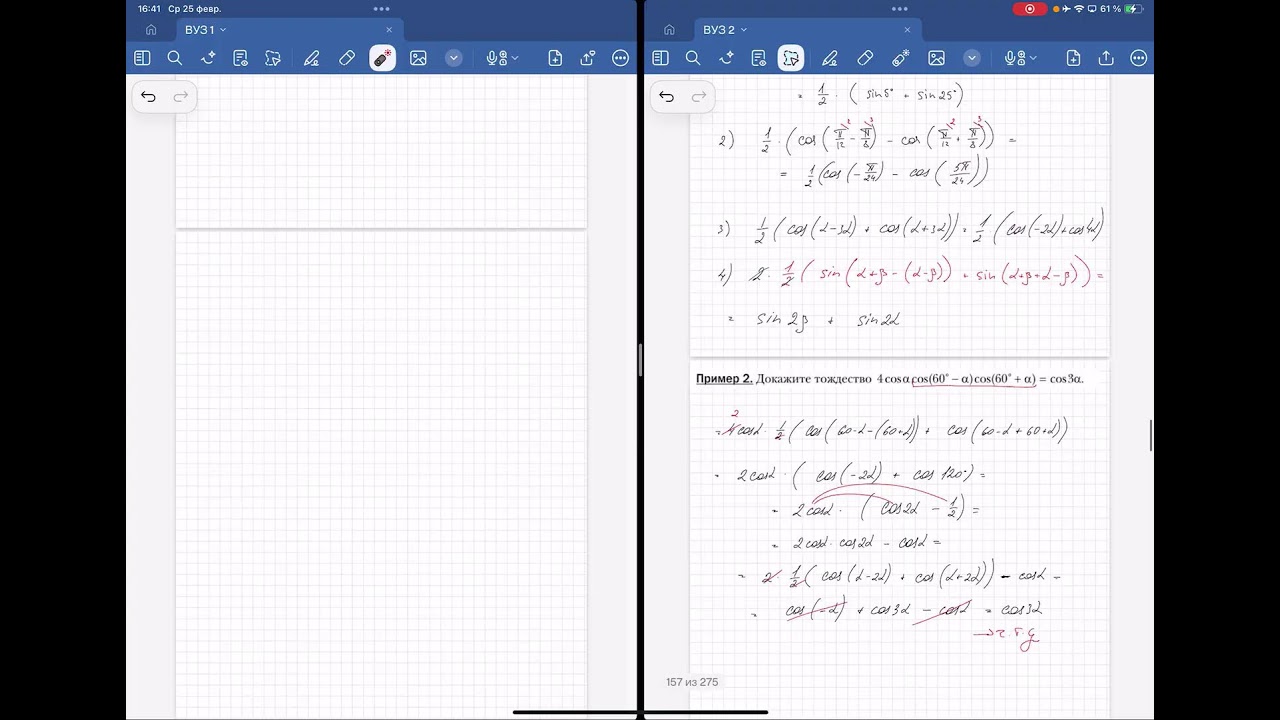 16:41 Ср 25 февр.
61 %
ВУЗ 1
ВУЗ 2
= 1/2 · (sin5° + sin25°)
2) 1/2 · (cos(π/12 - π/8) - cos(π/12 + π/8)) =
2 3 2 3
= 1/2 (cos(-π/24) - cos(5π/24))
3) 1/2 (cos(α-3α) + cos(α+3α)) = 1/2 · (cos(-2α)+cos4α)
4) 2 · 1/2 (sin(α+β-(α-β)) + sin(α+β+α-β)) =
= sin2β + sin2α
Пример 2. Докажите тождество 4cosαcos(60° − α)cos(60° + α) = cos3α.
2
= 4cosα · 1/2 (cos(60-α-(60+α)) + cos(60-α+60+α))
= 2cosα · (cos(-2α) + cos120°) =
= 2cosα · (cos2α - 1/2) =
= 2cosα · cos2α - cosα =
= 2 · 1/2 (cos(α-2α) + cos(α+2α)) - cosα =
= cos(-α) + cos3α - cosα = cos3α
→ ч.т.д
157 из 275